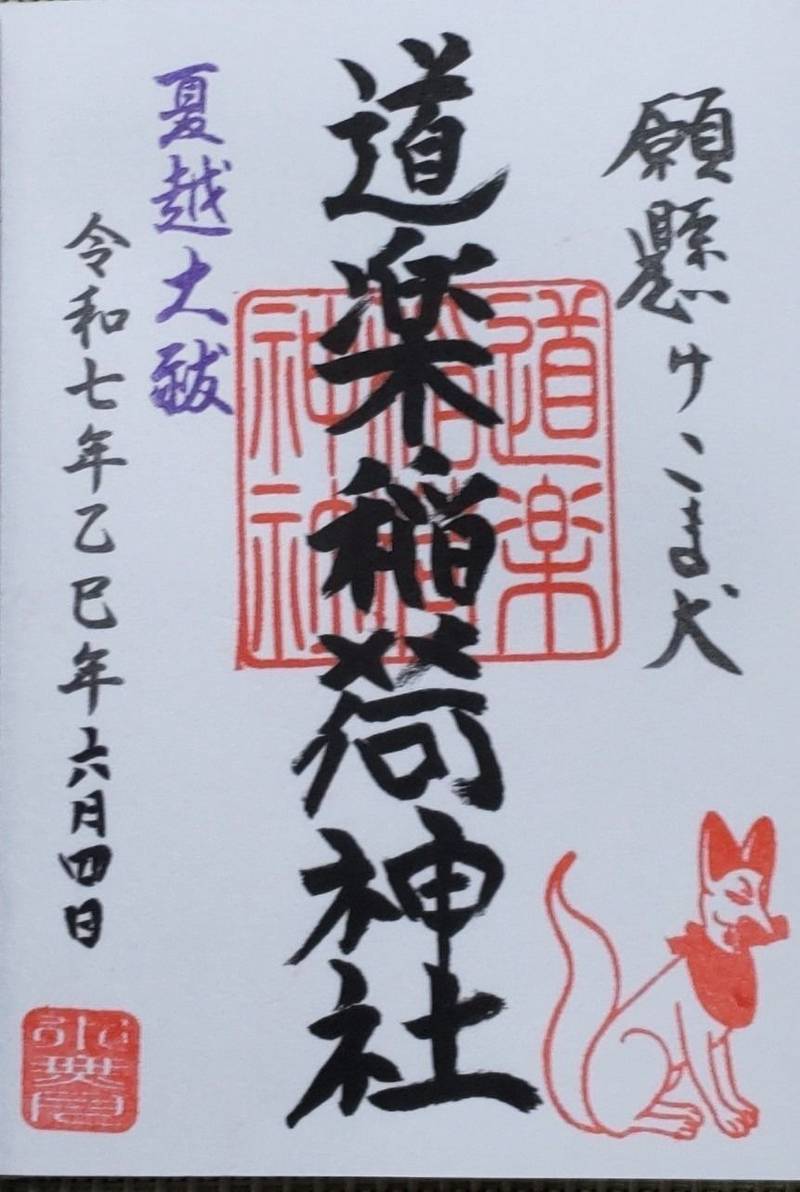 願懸けこま犬
道楽稲荷神社
道楽
稲荷
神社
夏越大祓
令和七年乙巳年六月四日
水無月